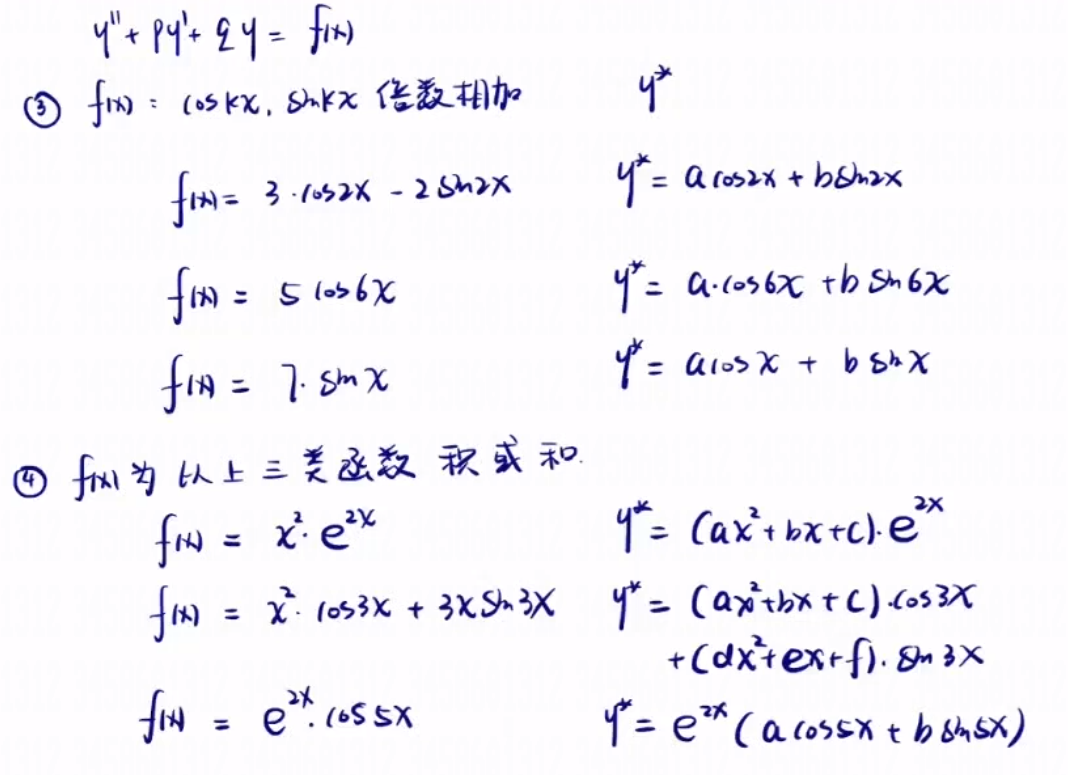 y''+ py'+ qy = f(x)
③ f(x): coskx, sinkx 倍数相加 y*
f(x)= 3·cos2x - 2sin2x y*= acos2x + bsin2x
f(x) = 5cos6x y*= a·cos6x +bsin6x
f(x) = 7·sinx y*= acosx + bsinx
④ f(x)为以上三类函数 积或和.
f(x) = x²·e^{2x} y*= (ax²+bx+c)·e^{2x}
f(x) = x²·cos3x + 3xsin3x y*= (ax²+bx+c)·cos3x
+(dx²+ex+f)·sin3x
f(x) = e^{2x}·cos5x y*= e^{2x}(acos5x + bsin5x)